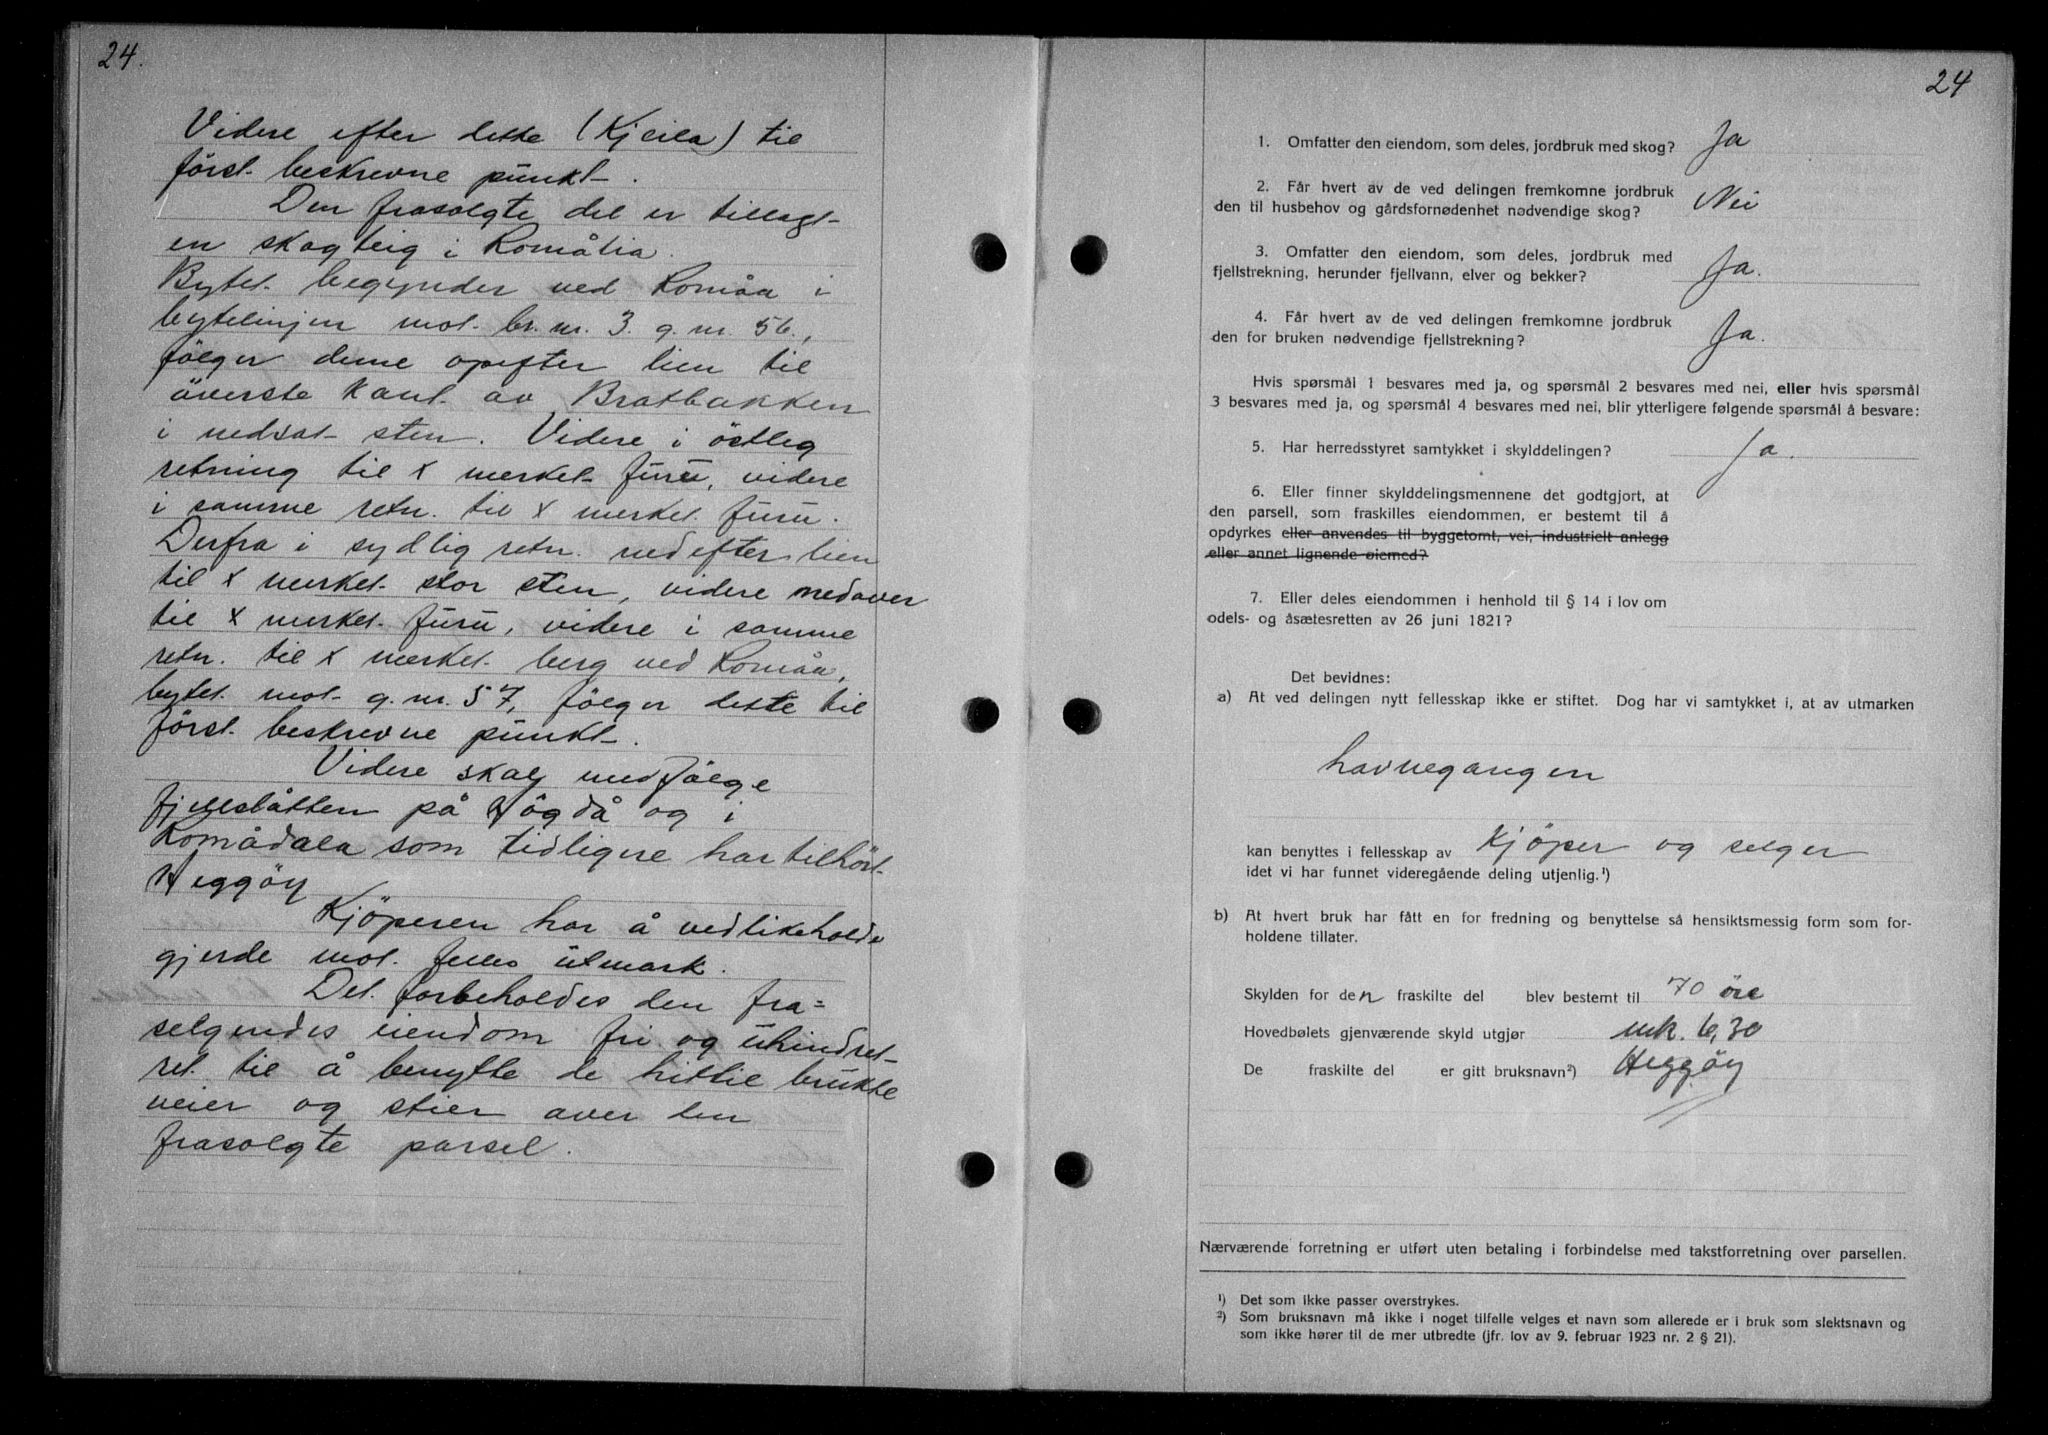 24.
Videre efter dette (Kjeila) til
först beskrevne punkt.
Den frasolgte del er tillagt
en skogteig i Romålia.
Bytet begynder ved Romåa i
bytelinjen mot br. nr. 3. g. nr. 56.,
fölger denne opefter lien til
överste kant av Bratbakken
i nedsat sten. Videre i östlig
retning til x merket furu, videre
i samme retn. til x merket furu.
Derfra i sydlig retn. nedefter lien
til x merket stor sten, videre nedover
til x merket furu, videre i samme
retn. til x merket berg ved Romåa,
bytet mot g. nr. 57, fölger dette til
först beskrevne punkt.
Videre skal medfölge
fjellslåtten på Högdå og i
Romådala som tidligere har tilhört
Heggöy
Kjöperen har å vedlikeholde
gjerde mot felles utmark.
Det forbeholdes den fra=
selgendes eiendom fri og uhindret
ret til å benytte de hittil brukte
veier og stier over den
frasolgte parsel.
24
1. Omfatter den eiendom, som deles, jordbruk med skog? Ja
2. Får hvert av de ved delingen fremkomne jordbruk
den til husbehov og gårdsfornødenhet nødvendige skog? Nei
3. Omfatter den eiendom, som deles, jordbruk med
fjellstrekning, herunder fjellvann, elver og bekker? Ja.
4. Får hvert av de ved delingen fremkomne jordbruk
den for bruken nødvendige fjellstrekning? Ja.
Hvis spørsmål 1 besvares med ja, og spørsmål 2 besvares med nei, eller hvis spørsmål
3 besvares med ja, og spørsmål 4 besvares med nei, blir ytterligere følgende spørsmål å besvare:
5. Har herredsstyret samtykket i skylddelingen? Ja.
6. Eller finner skylddelingsmennene det godtgjort, at
den parsell, som fraskilles eiendommen, er bestemt til å
opdyrkes eller anvendes til byggetomt, vei, industrielt anlegg
eller annet lignende øiemed?
7. Eller deles eiendommen i henhold til § 14 i lov om
odels- og åsætesretten av 26 juni 1821?
Det bevidnes:
a) At ved delingen nytt fellesskap ikke er stiftet. Dog har vi samtykket i, at av utmarken
havnegangen
kan benyttes i fellesskap av Kjöper og selger
idet vi har funnet videregående deling utjenlig.¹)
b) At hvert bruk har fått en for fredning og benyttelse så hensiktsmessig form som for-
holdene tillater.
Skylden for den fraskilte del blev bestemt til 70 öre
Hovedbølets gjenværende skyld utgjør mk. 6,30
De fraskilte del er gitt bruksnavn²) Heggöy
Nærværende forretning er utført uten betaling i forbindelse med takstforretning over parsellen.
¹) Det som ikke passer overstrykes.
²) Som bruksnavn må ikke i noget tilfelle velges et navn som allerede er i bruk som slektsnavn og
som ikke hører til de mer utbredte (jfr. lov av 9. februar 1923 nr. 2 § 21).